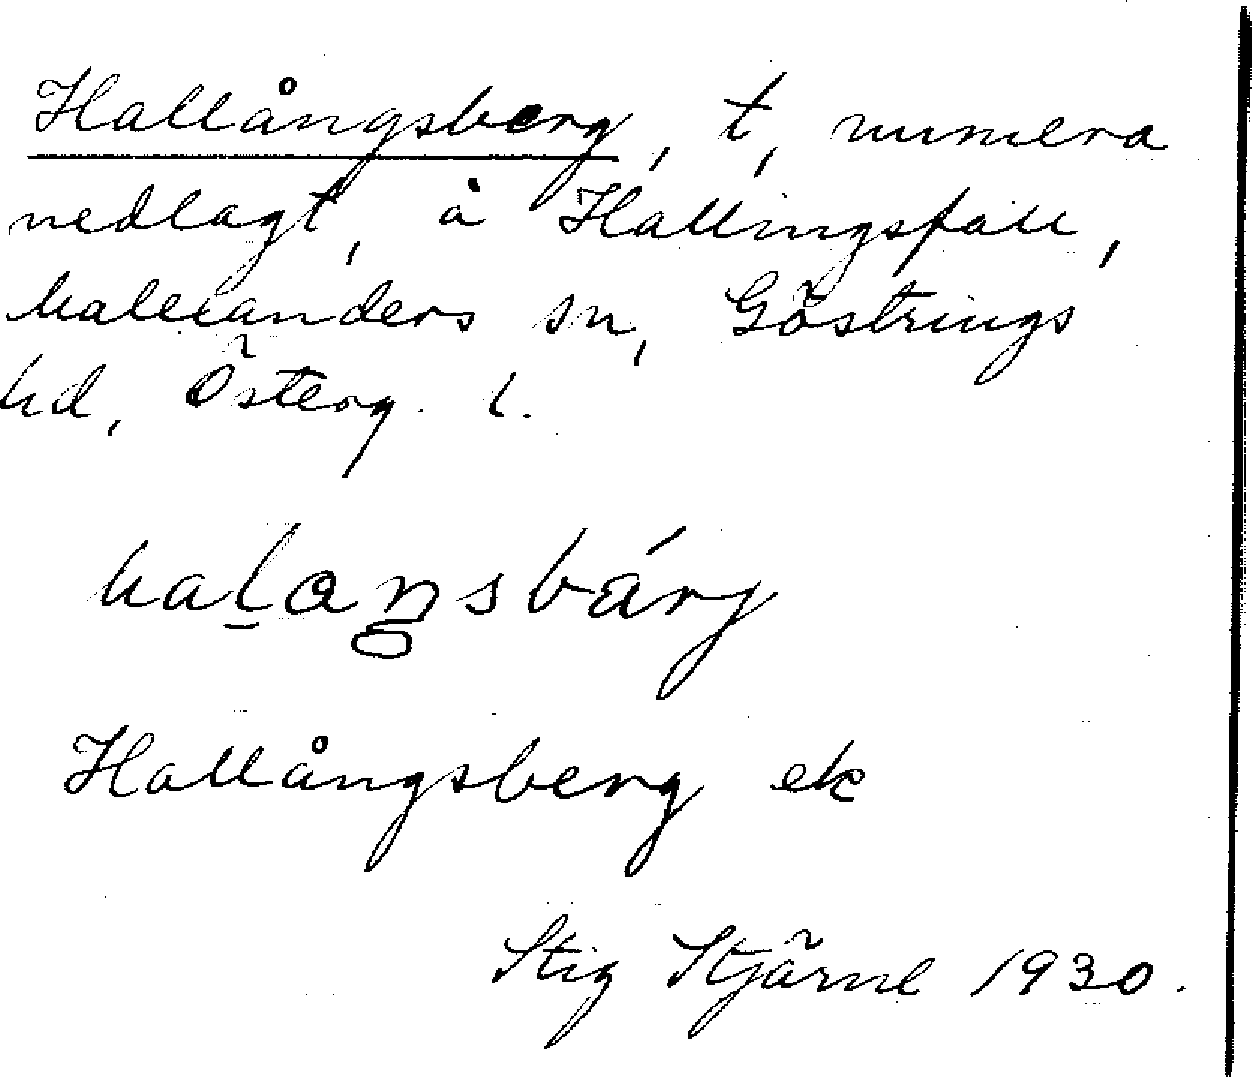 Hallångsberg, t, numera
nedlagt, å Hallingsfall,
Malexanders sn, Göstrings
hd, Österg. l.
Hallångsberg ek
Stig Stjärne 1930.